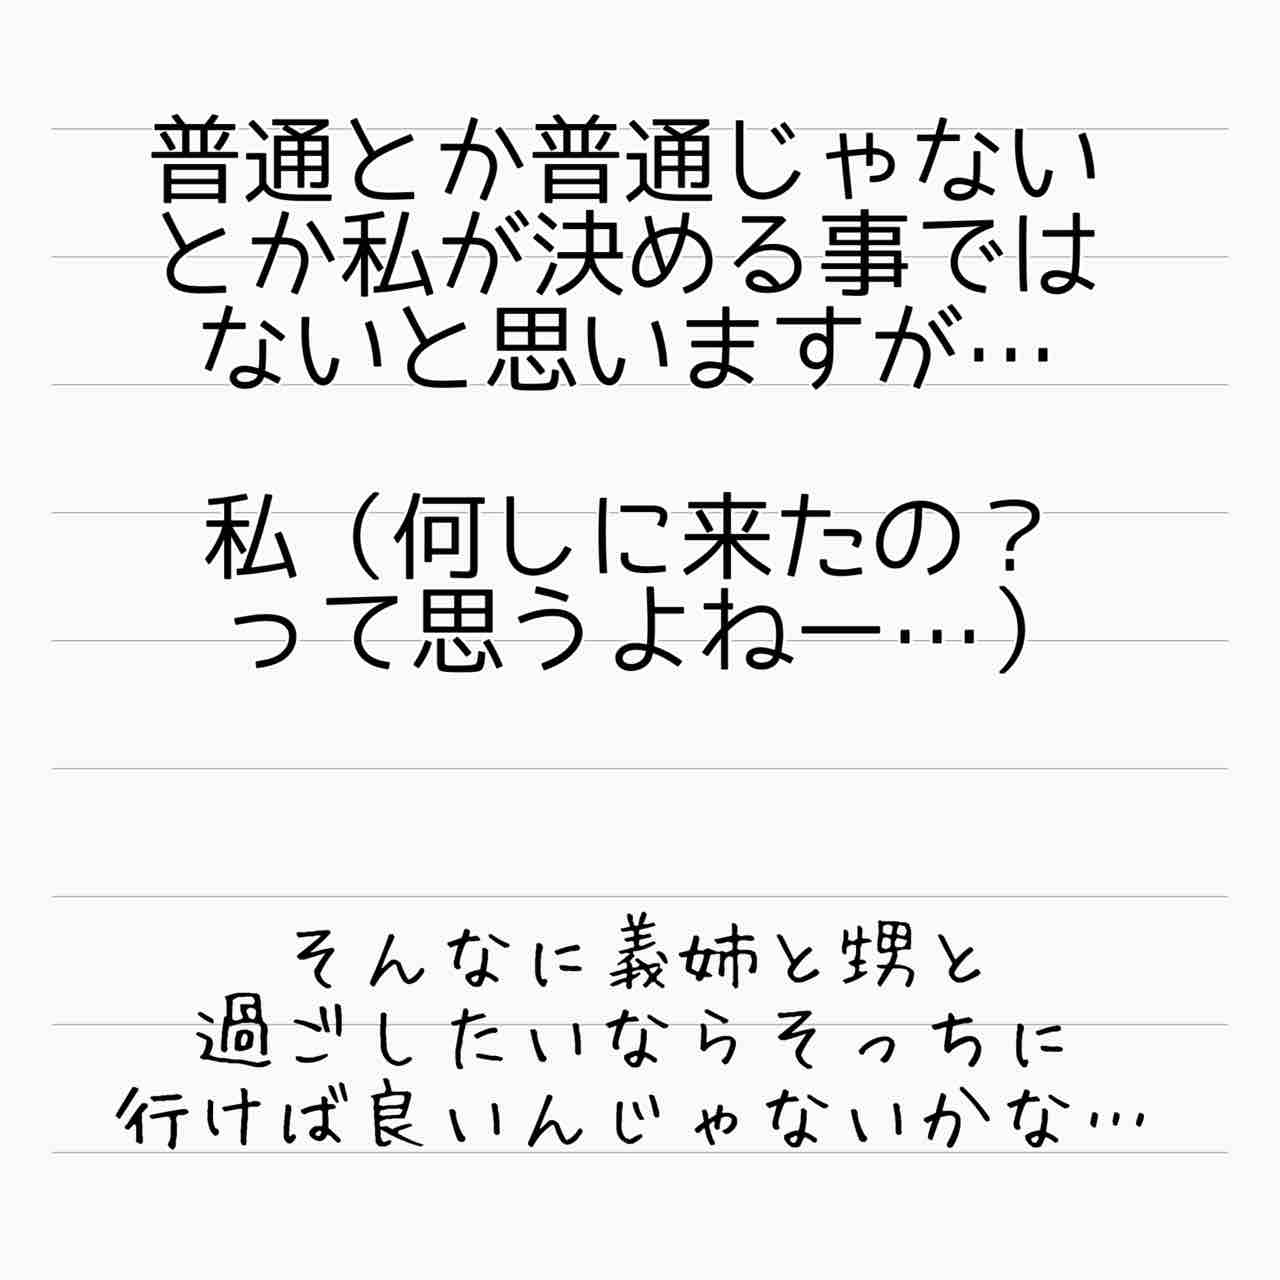 普通とか普通じゃない
とか私が決める事では
ないと思いますが…
私（何しに来たの？
って思うよねー…）
そんなに義姉と甥と
過ごしたいならそっちに
行けば良いんじゃないかな…